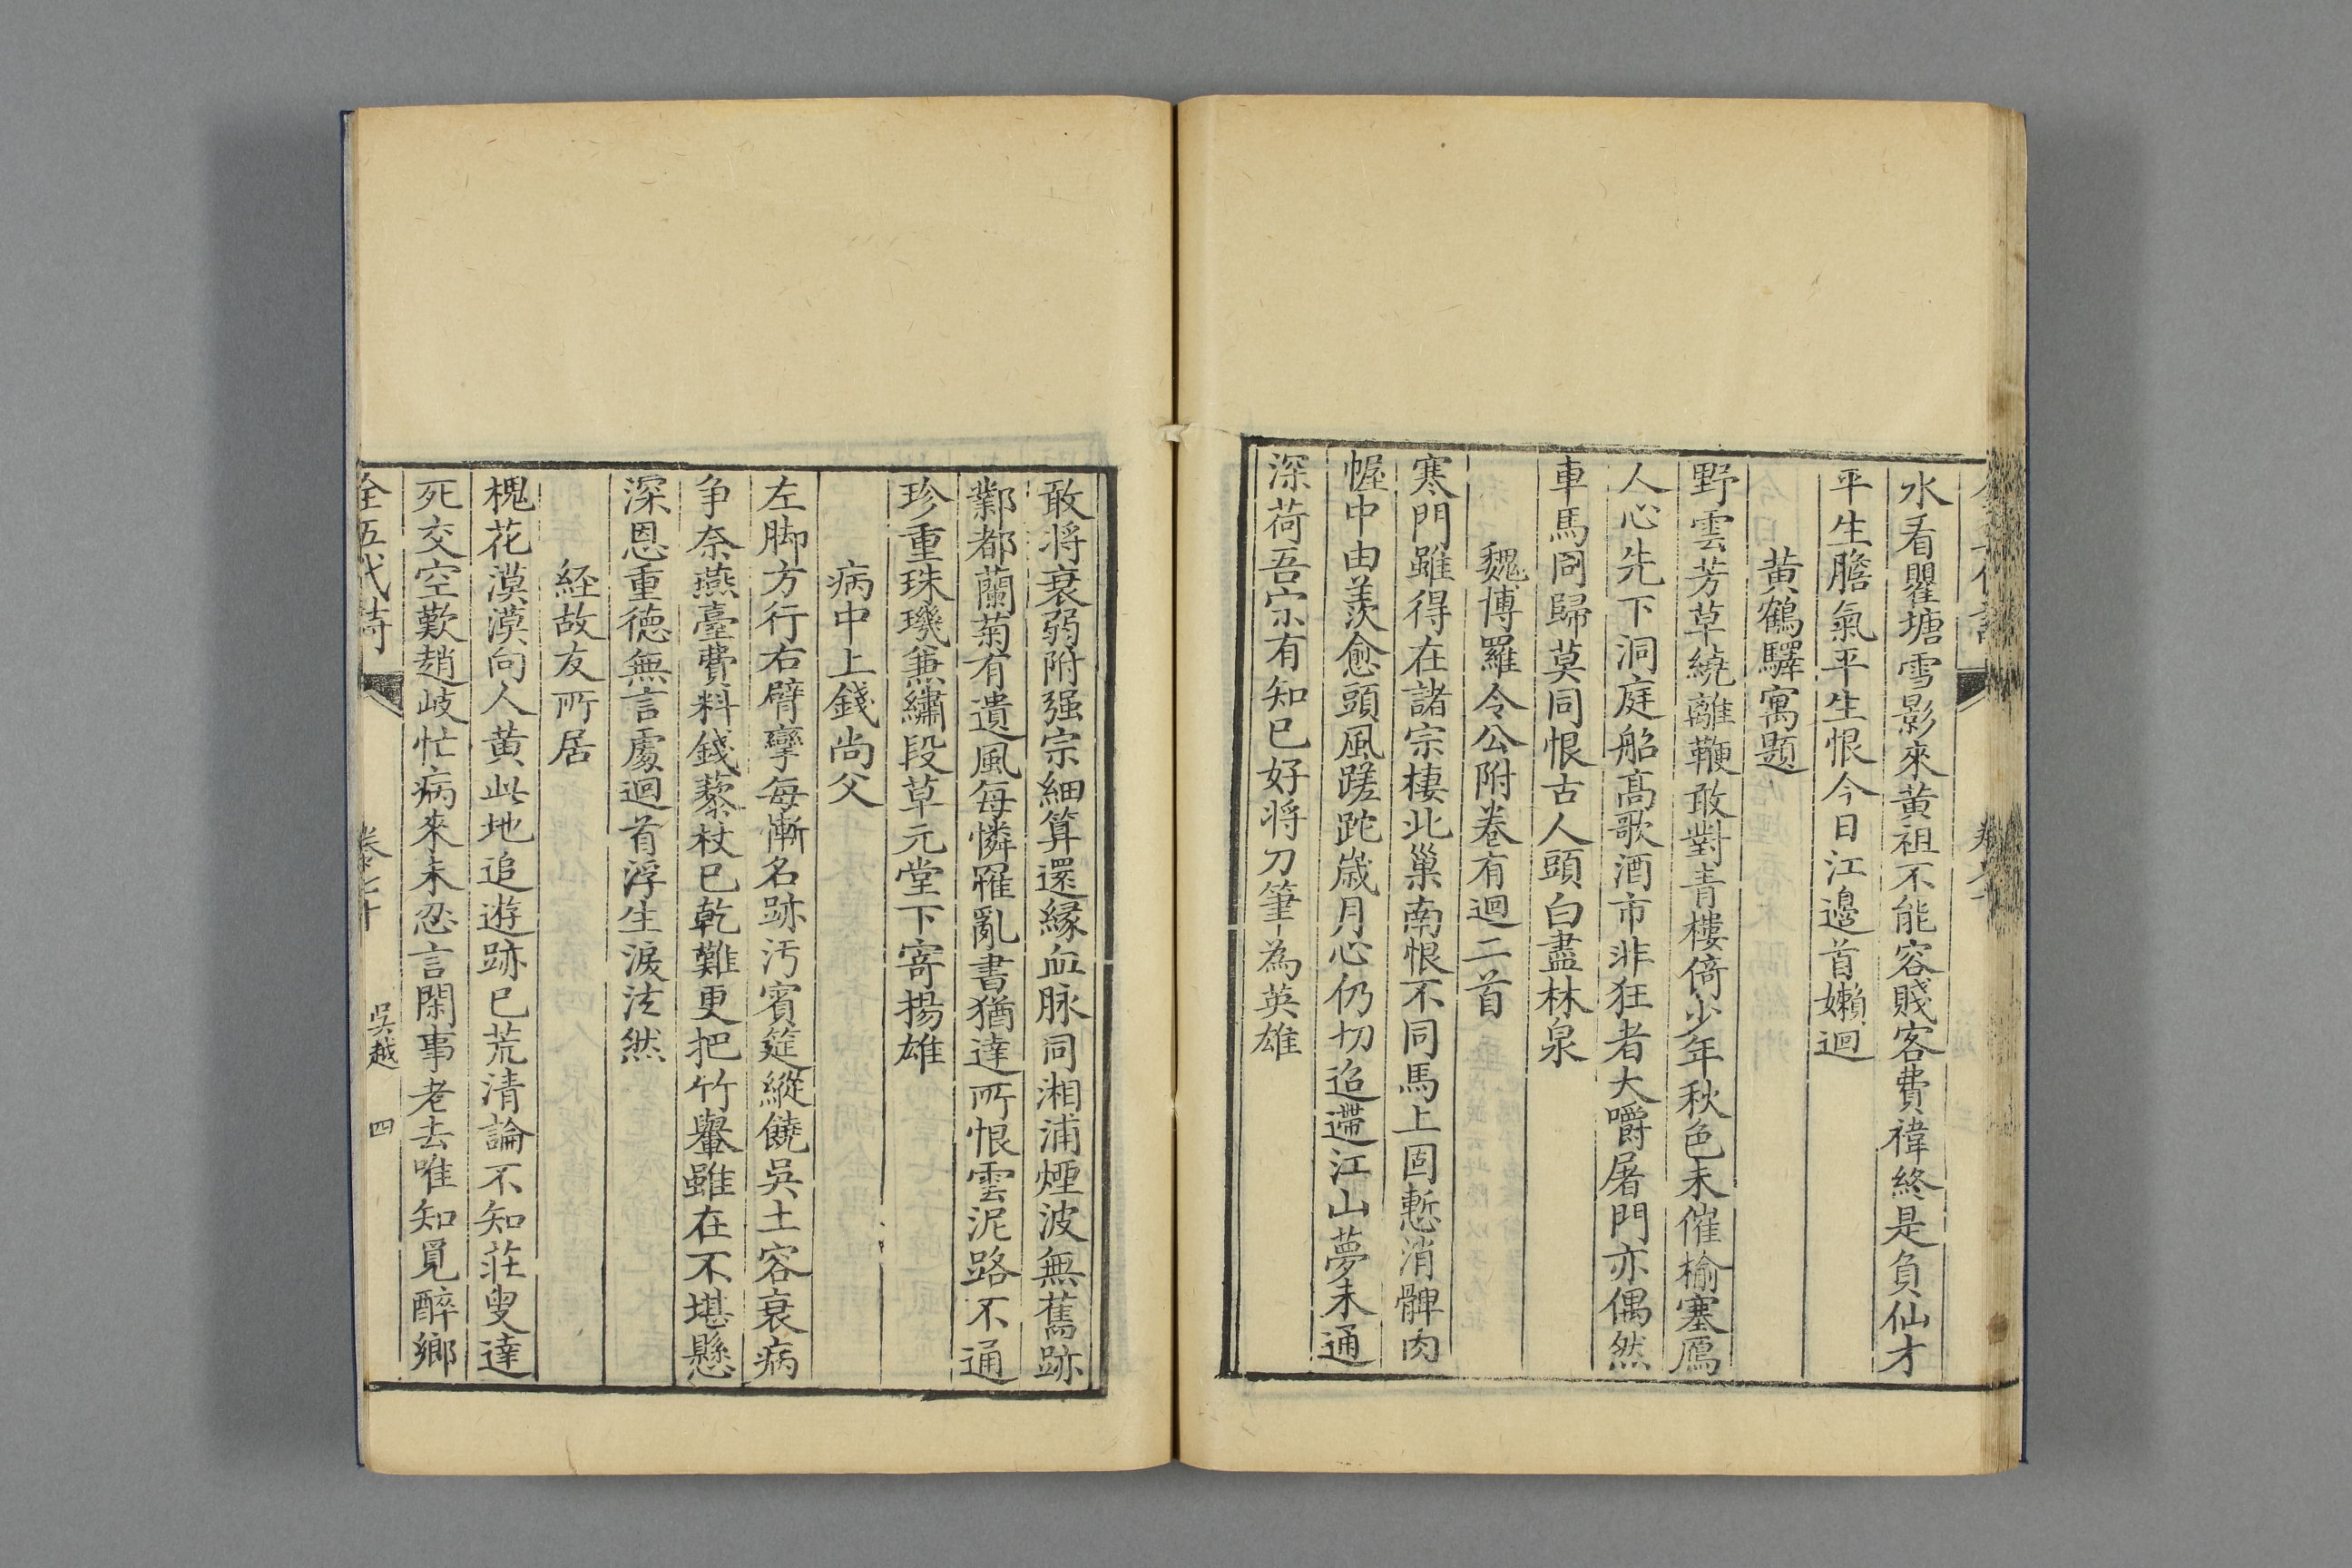 水看瞿塘雪影來黃祖不能容賤客費禕終是負仙才
平生膽氣平生恨今日江邊首嬾迴
黃鶴驛寓題
野雲芳草繞離鞭敢對青樓倚少年秋色未催榆塞鴈
人心先下洞庭船高歌酒市非狂者大嚼屠門亦偶然
車馬同歸莫同恨古人頭白盡林泉
魏博羅令公附卷有迴二首
寒門雖得在諸宗棲北巢南恨不同馬上固慙消髀肉
幄中由羨愈頭風蹉跎嵗月心仍切迢遰江山夢未通
深荷吾宗有知已好將刀筆為英雄
敢將衰弱附强宗細算還緣血脉同湘浦煙波無舊跡
鄴都蘭菊有遺風每憐罹亂書猶達所恨雲泥路不通
珍重珠璣兼繡段草元堂下寄揚雄
病中上錢尚父
左脚方行右臂攣每慚名跡汚賓筵縱饒吳土容衰病
争奈燕臺費料錢藜杖已乾難更把竹轝雖在不堪懸
深恩重德無言處迴首浮生淚泫然
経故友所居
槐花漠漠向人黃此地追遊跡已荒清論不知莊叟達
死交空歎趙岐忙病來未忍言閑事老去唯知覓醉鄉
全五代詩 卷七十 吳越 四